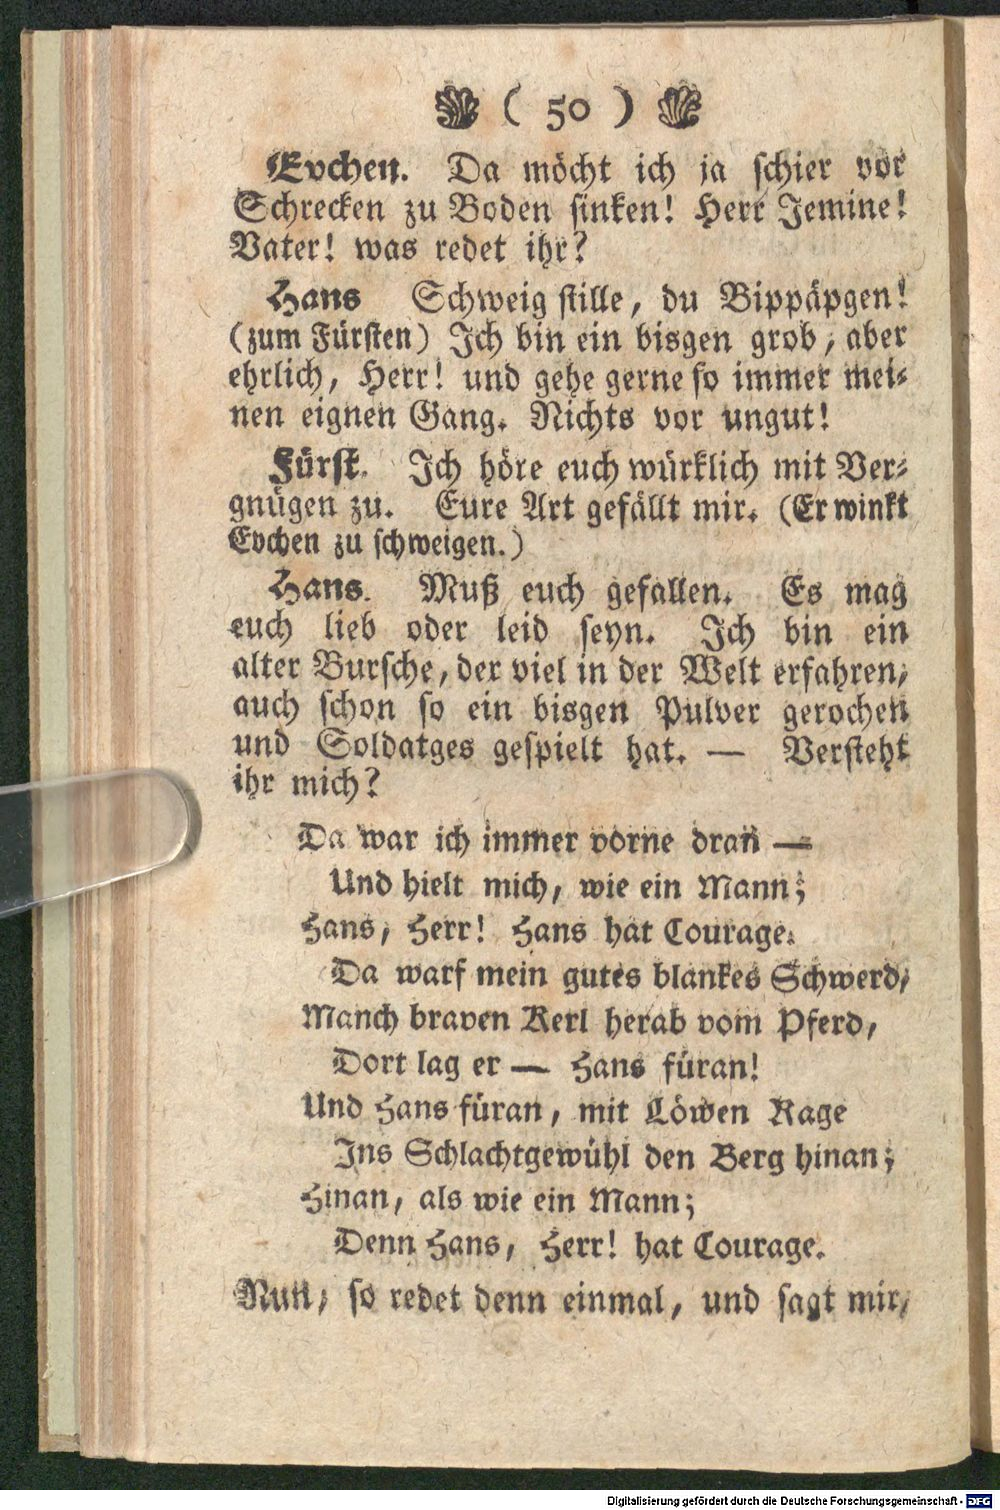 ( 50 )
Evchen. Da möcht ich ja schier vor
Schrecken zu Boden sinken! Herr Jemine!
Vater! was redet ihr?
Hans Schweig stille, du Bippäpgen!
(zum Fürsten) Ich bin ein bisgen grob, aber
ehrlich, Herr! und gehe gerne so immer mei-
nen eignen Gang. Nichts vor ungut!
Fürst. Ich höre euch würklich mit Ver-
gnügen zu. Eure Art gefällt mir. (Er winkt
Evchen zu schweigen.)
Hans. Muß euch gefallen. Es mag
euch lieb oder leid seyn. Ich bin ein
alter Bursche, der viel in der Welt erfahren,
auch schon so ein bisgen Pulver gerochen
und Soldatges gespielt hat. — Versteht
ihr mich?
Da war ich immer vorne dran —
Und hielt mich, wie ein Mann;
Hans, Herr! Hans hat Courage.
Da warf mein gutes blankes Schwerd,
Manch braven Kerl herab vom Pferd,
Dort lag er — Hans füran!
Und Hans füran, mit Löwen Rage
Ins Schlachtgewühl den Berg hinan;
Hinan, als wie ein Mann;
Denn Hans, Herr! hat Courage.
Nun, so redet denn einmal, und sagt mir,
Digitalisierung gefördert durch die Deutsche Forschungsgemeinschaft - DFG